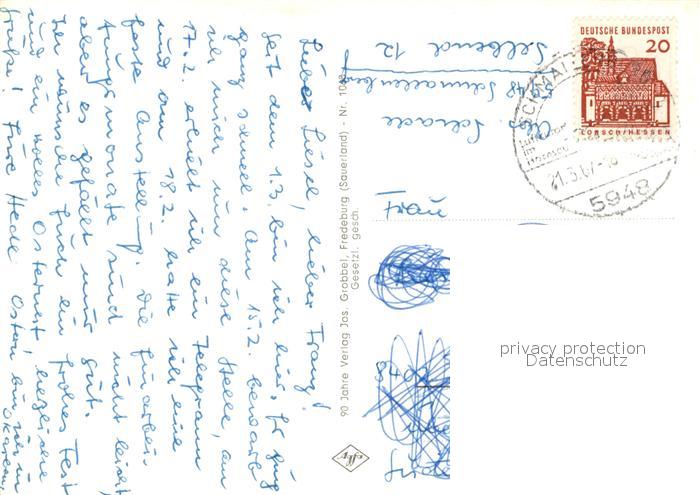 Liebe Liesel, lieber Franz!
Seit dem 1.3. bin ich hier. Es ging
ganz schnell. Am 15.2. bewarb
ich mich um diese Stelle, am
17.2. erhielt ich ein Telegramm
und am 18.2. hatte ich eine
feste Anstellung. Die Einarbei-
tungsmonate sind nicht leicht,
aber es gefällt mir gut.
Ich wünsche Euch ein frohes Fest
und ein volles Osternest, herzliche
Grüße! Eure Hedi Ostern bin ich in
90 Jahre Verlag Jos. Grobbel, Fredeburg (Sauerland) - Nr.
Gesetzl. gesch.
Schrade
5948 Schmallenberg
12
DEUTSCHE BUNDESPOST
20
LORSCH/HESSEN
21.3.67
5948
privacy protection
Datenschutz